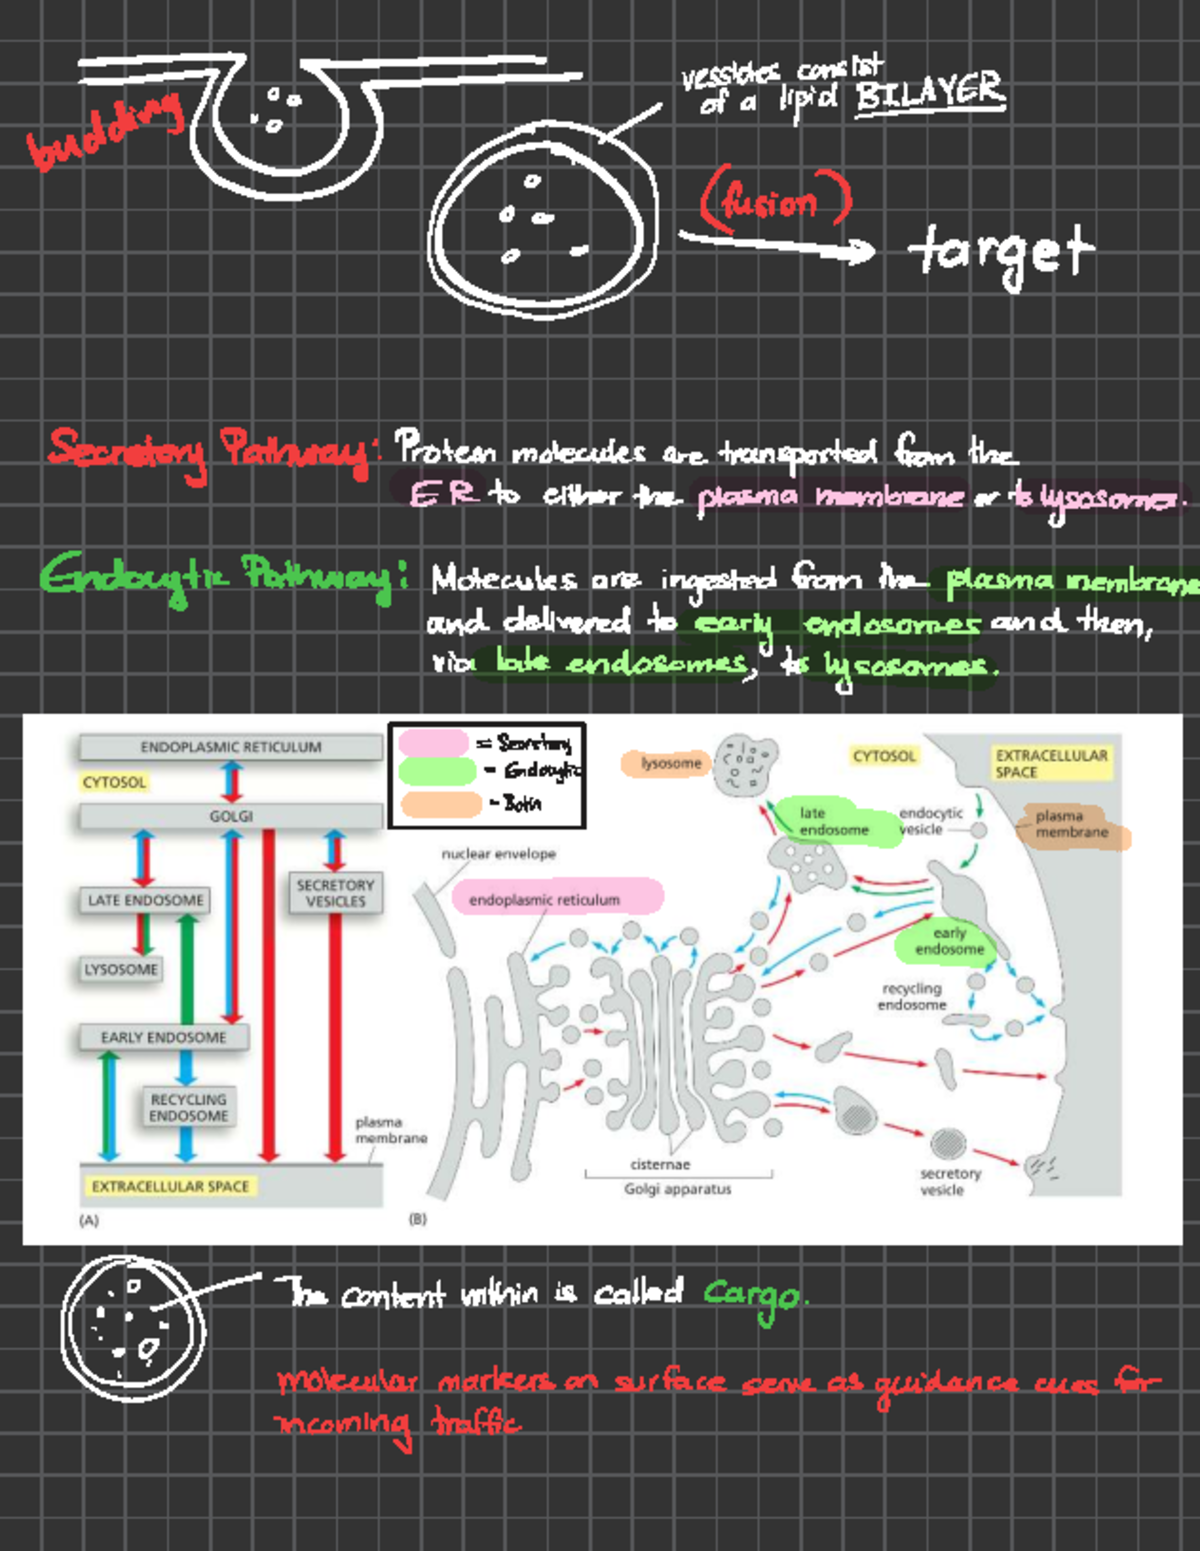 budding
vessicles consist
of a lipid BILAYER
(fusion)
target
Secretory Pathway: Protein molecules are transported from the
ER to either the plasma membrane or to lysosomes.
Endocytic Pathway: Molecules are ingested from the plasma membrane
and delivered to early endosomes and then,
via late endosomes, to lysosomes.
ENDOPLASMIC RETICULUM
CYTOSOL
GOLGI
LATE ENDOSOME
SECRETORY
VESICLES
LYSOSOME
EARLY ENDOSOME
RECYCLING
ENDOSOME
plasma
membrane
EXTRACELLULAR SPACE
(A)
= Secretory
- Endocytic
- Both
lysosome
CYTOSOL
EXTRACELLULAR
SPACE
late
endosome
endocytic
vesicle
plasma
membrane
nuclear envelope
endoplasmic reticulum
early
endosome
recycling
endosome
cisternae
Golgi apparatus
secretory
vesicle
(B)
The content within is called Cargo.
molecular markers on surface serve as guidance cues for
incoming traffic